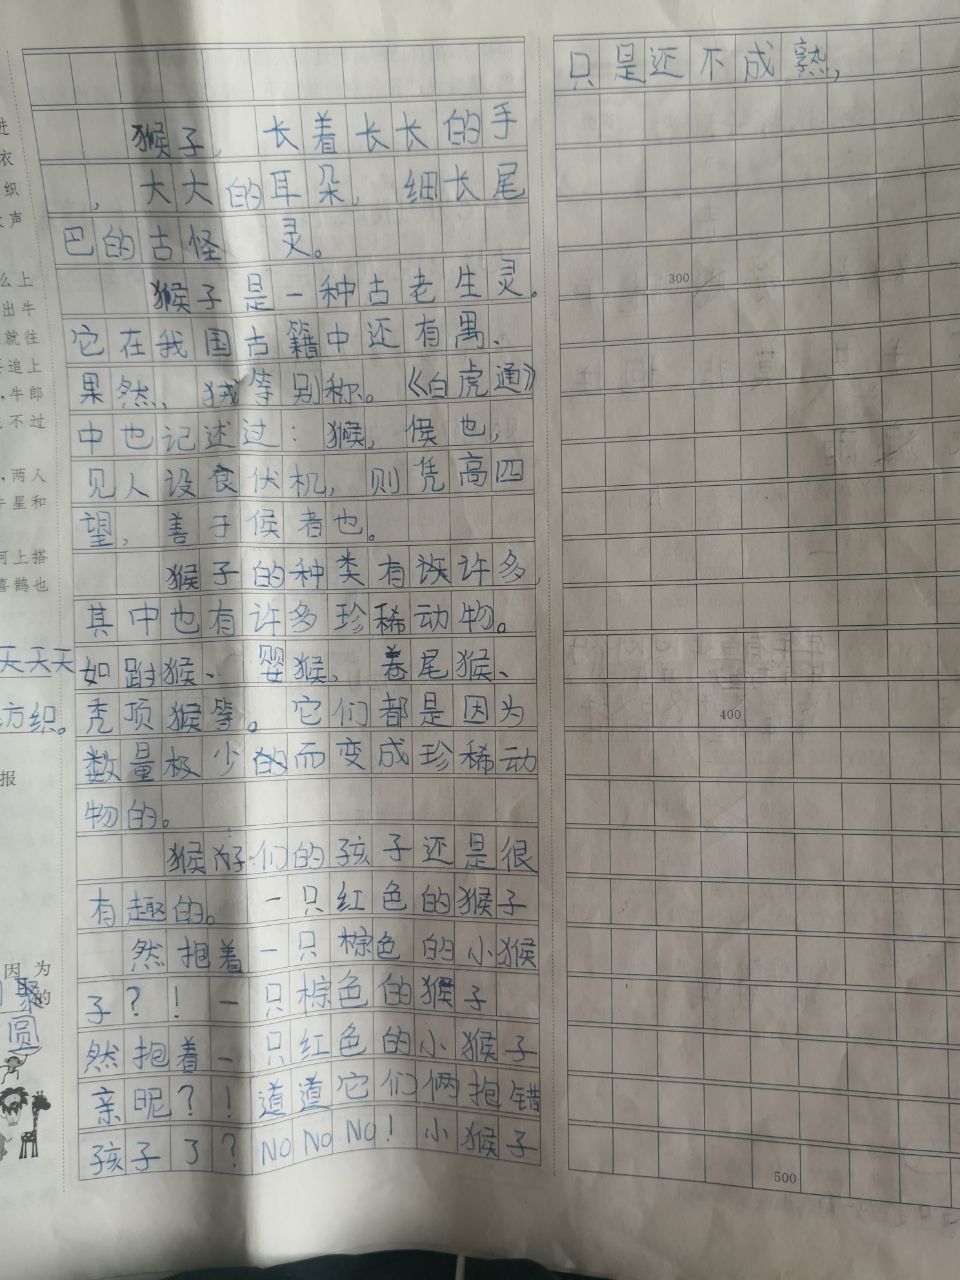 进
衣
织
声
么上
出牛
就往
追上
,牛郎
不过
,两人
星和
河上搭
喜鹊也
天天天
方织。
报
因为
聚的
圆
猴子,长着长长的手
,大大的耳朵,细长尾
巴的古怪 灵。
猴子是一种古老生灵。
它在我国古籍中还有禺、
果然、狨等别称。《白虎通》
中也记述过:猴,侯也,
见人设食伏机,则凭高四
望,善于侯者也。
猴子的种类有许多,
其中也有许多珍稀动物。
如跗猴、婴猴、卷尾猴、
秃顶猴等。它们都是因为
数量极少的而变成珍稀动
物的。
猴子们的孩子还是很
有趣的。一只红色的猴子
然抱着一只棕色的小猴
子?!一只棕色的猴子
然抱着一只红色的小猴子
亲昵?!道道它们俩抱错
孩子了?NO NO NO!小猴子
只是还不成熟,
300
400
500